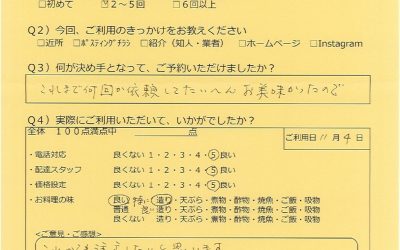 □初めて ☑2～5回 □6回以上
Q2）今回、ご利用のきっかけをお教えください
□近所 □ポスティングチラシ □紹介（知人・業者） □ホームページ □Instagram
Q3）何が決め手となって、ご予約いただけましたか？
これまで何回か依頼してたいへんお美味かったので
Q4）実際にご利用いただいて、いかがでしたか？
全体 100点満点中 点
ご利用日 11月4日
・電話対応 良くない 1・2・3・4・5 良い
・配達スタッフ 良くない 1・2・3・4・5 良い
・価格設定 良くない 1・2・3・4・5 良い
・お料理の味 良い 特に 造り・天ぷら・煮物・酢物・焼魚・ご飯・吸物
普通 良い 造り・天ぷら・煮物・酢物・焼魚・ご飯・吸物
良くない 造り・天ぷら・煮物・酢物・焼魚・ご飯・吸物
＜ご意見・ご感想＞